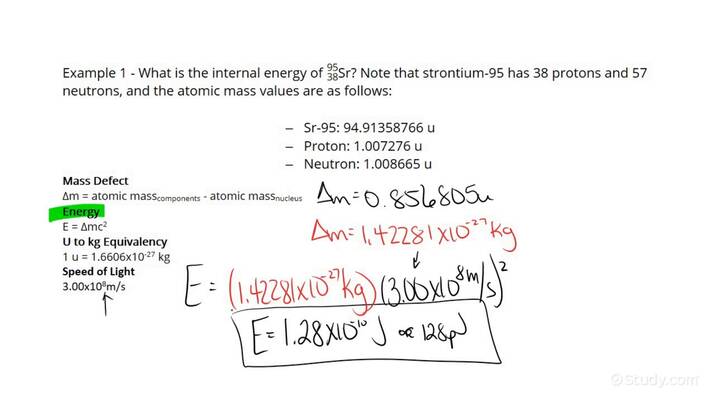 Example 1 - What is the internal energy of ⁹⁵₃₈Sr? Note that strontium-95 has 38 protons and 57
neutrons, and the atomic mass values are as follows:
– Sr-95: 94.91358766 u
– Proton: 1.007276 u
– Neutron: 1.008665 u
Mass Defect
Δm = atomic mass_components - atomic mass_nucleus
Δm = 0.856805u
Energy
E = Δmc²
Δm = 1.42281x10⁻²⁷ kg
U to kg Equivalency
1 u = 1.6606x10⁻²⁷ kg
Speed of Light
3.00x10⁸m/s
E = (1.42281x10⁻²⁷kg)(3.00x10⁸m/s)²
E = 1.28x10⁻¹⁰ J or 128pJ
©Study.com